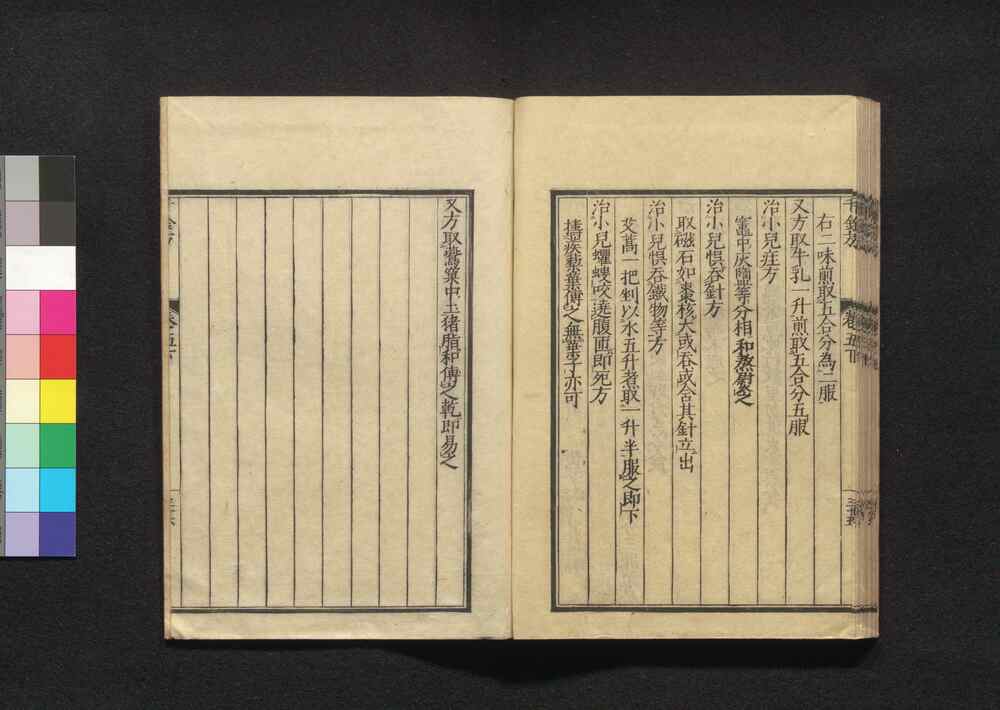 右二味煎取五合分為二服
又方取牛乳一升煎取五合分五服
治小兒疰方
竈中灰鹽等分相和熬熨之
治小兒悮吞針方
取磁石如棗核大或吞或含其針立出
治小兒悮吞鐵物等方
艾蒿一把剉以水五升煮取一升半服之即下
治小兒蠼螋咬遶腹匝即死方
擣蒺藜葉傅之無葉子亦可
又方取鷰窠中土猪脂和傅之乾即易之